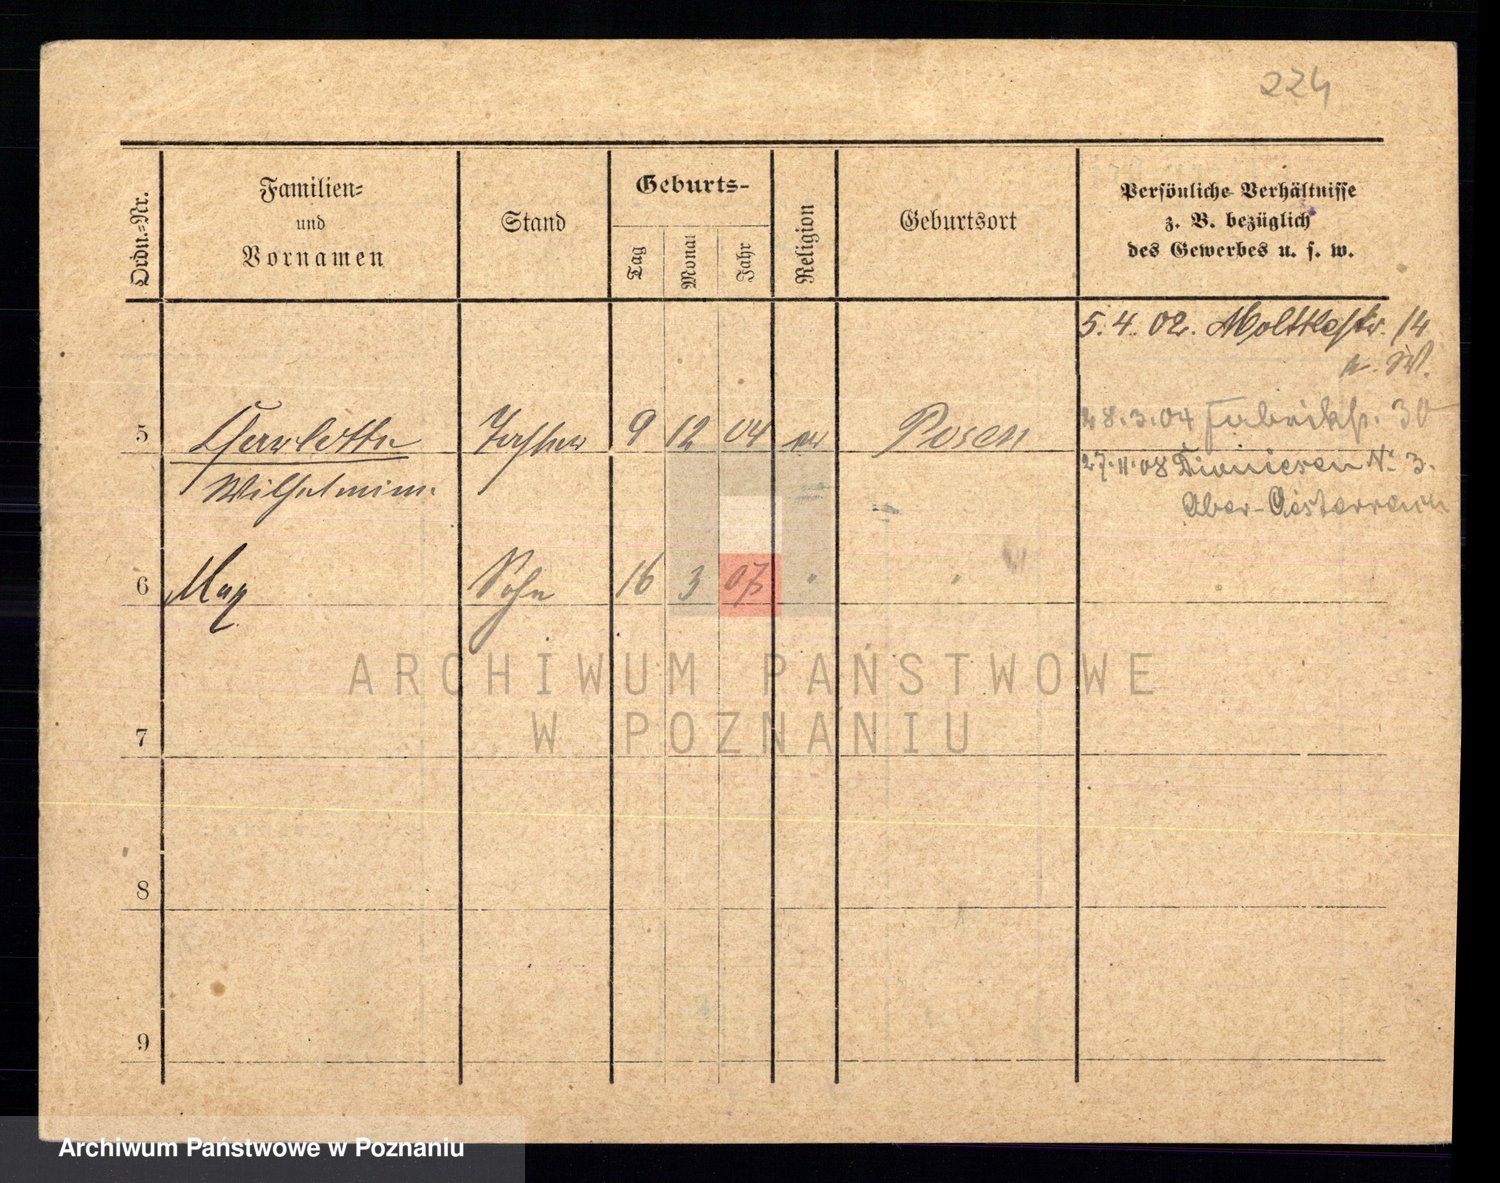 224
Ordn.-Nr.
Familien-
und
Vornamen
Stand
Geburts-
Tag
Monat
Jahr
Religion
Geburtsort
Persönliche Verhältnisse
z. B. bezüglich
des Gewerbes u. s. w.
5.4.02. Moltkestr. 14
n. W.
28.3.04 Fabrikstr. 30
5 Charlotte Tochter 9 12 04 ev Posen
27.11.08 Nr. 3.
Wilhelmine.
Ober-Oesterreich
6 Max Sohn 16 3 07 " "
ARCHIWUM PAŃSTWOWE
W POZNANIU
7
8
9
Archiwum Państwowe w Poznaniu